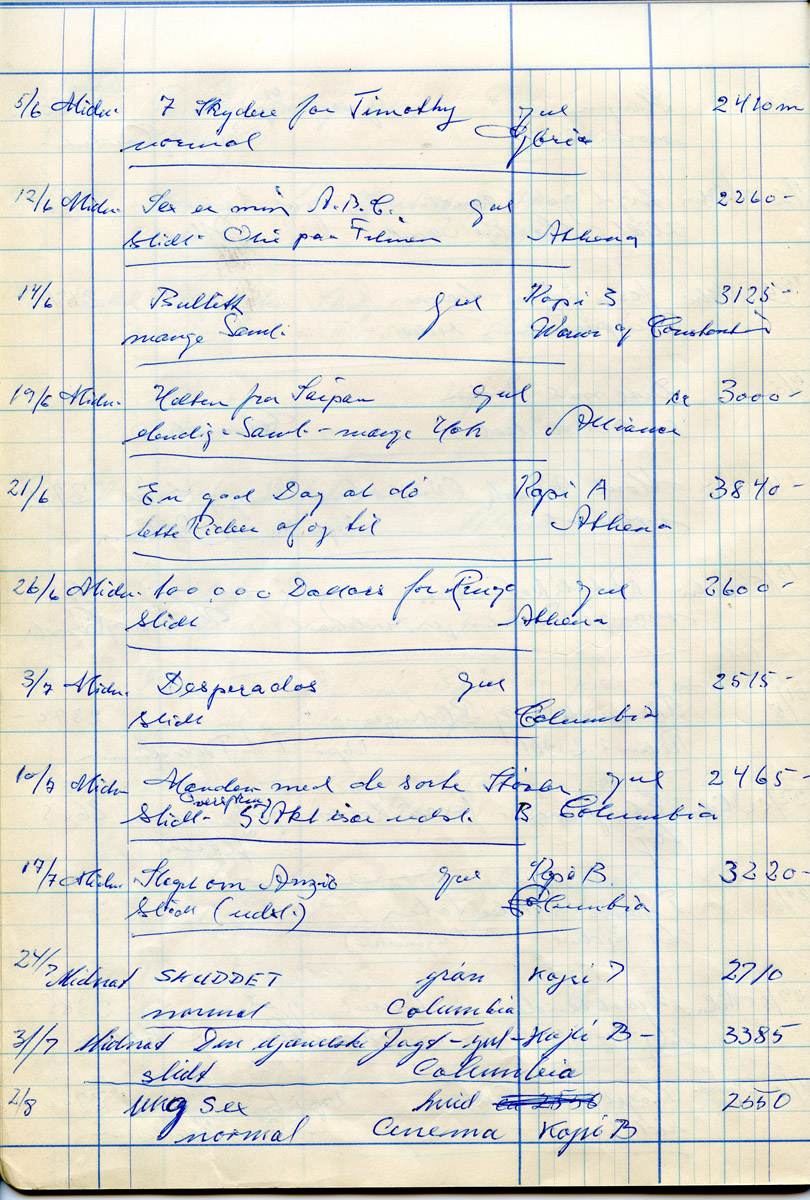 5/6 Midn. 7 Skydere for Timothy gul 2410 m
normal
12/6 Midn. Sex er min A.B.C. gul 2260-
slidt- Olie paa Filmen Athena
14/6 Bullitt gul Kopi 3 3125-
mange Saml. Warner og Constantin
19/6 Midn. fra Saipan gul ca 3000-
elendig- Saml- mange Hak Alliance
21/6 En god Dag at dø Kopi A 3840-
lette Ridser af og til Athena
26/6 Midn. 100,000 Dollars for Ringo gul 2600-
slidt Athena
3/7 Midn. Desperados gul 2515-
slidt Columbia
10/7 Midn Manden med de sorte Støvler gul 2465-
slidt- 5 Akt især udsl. B Columbia
17/7 Midn. Slaget om Anzio gul Kopi B. 3220-
slidt (udsl.) Columbia
24/7 Midnat SKUDDET grøn Kopi 7 2710
normal Columbia
31/7 Midnat Den djævelske Jagt - gul - Kopi B - 3385
slidt Columbia
2/8 Ung Sex hvid 2550
normal Cinema Kopi B